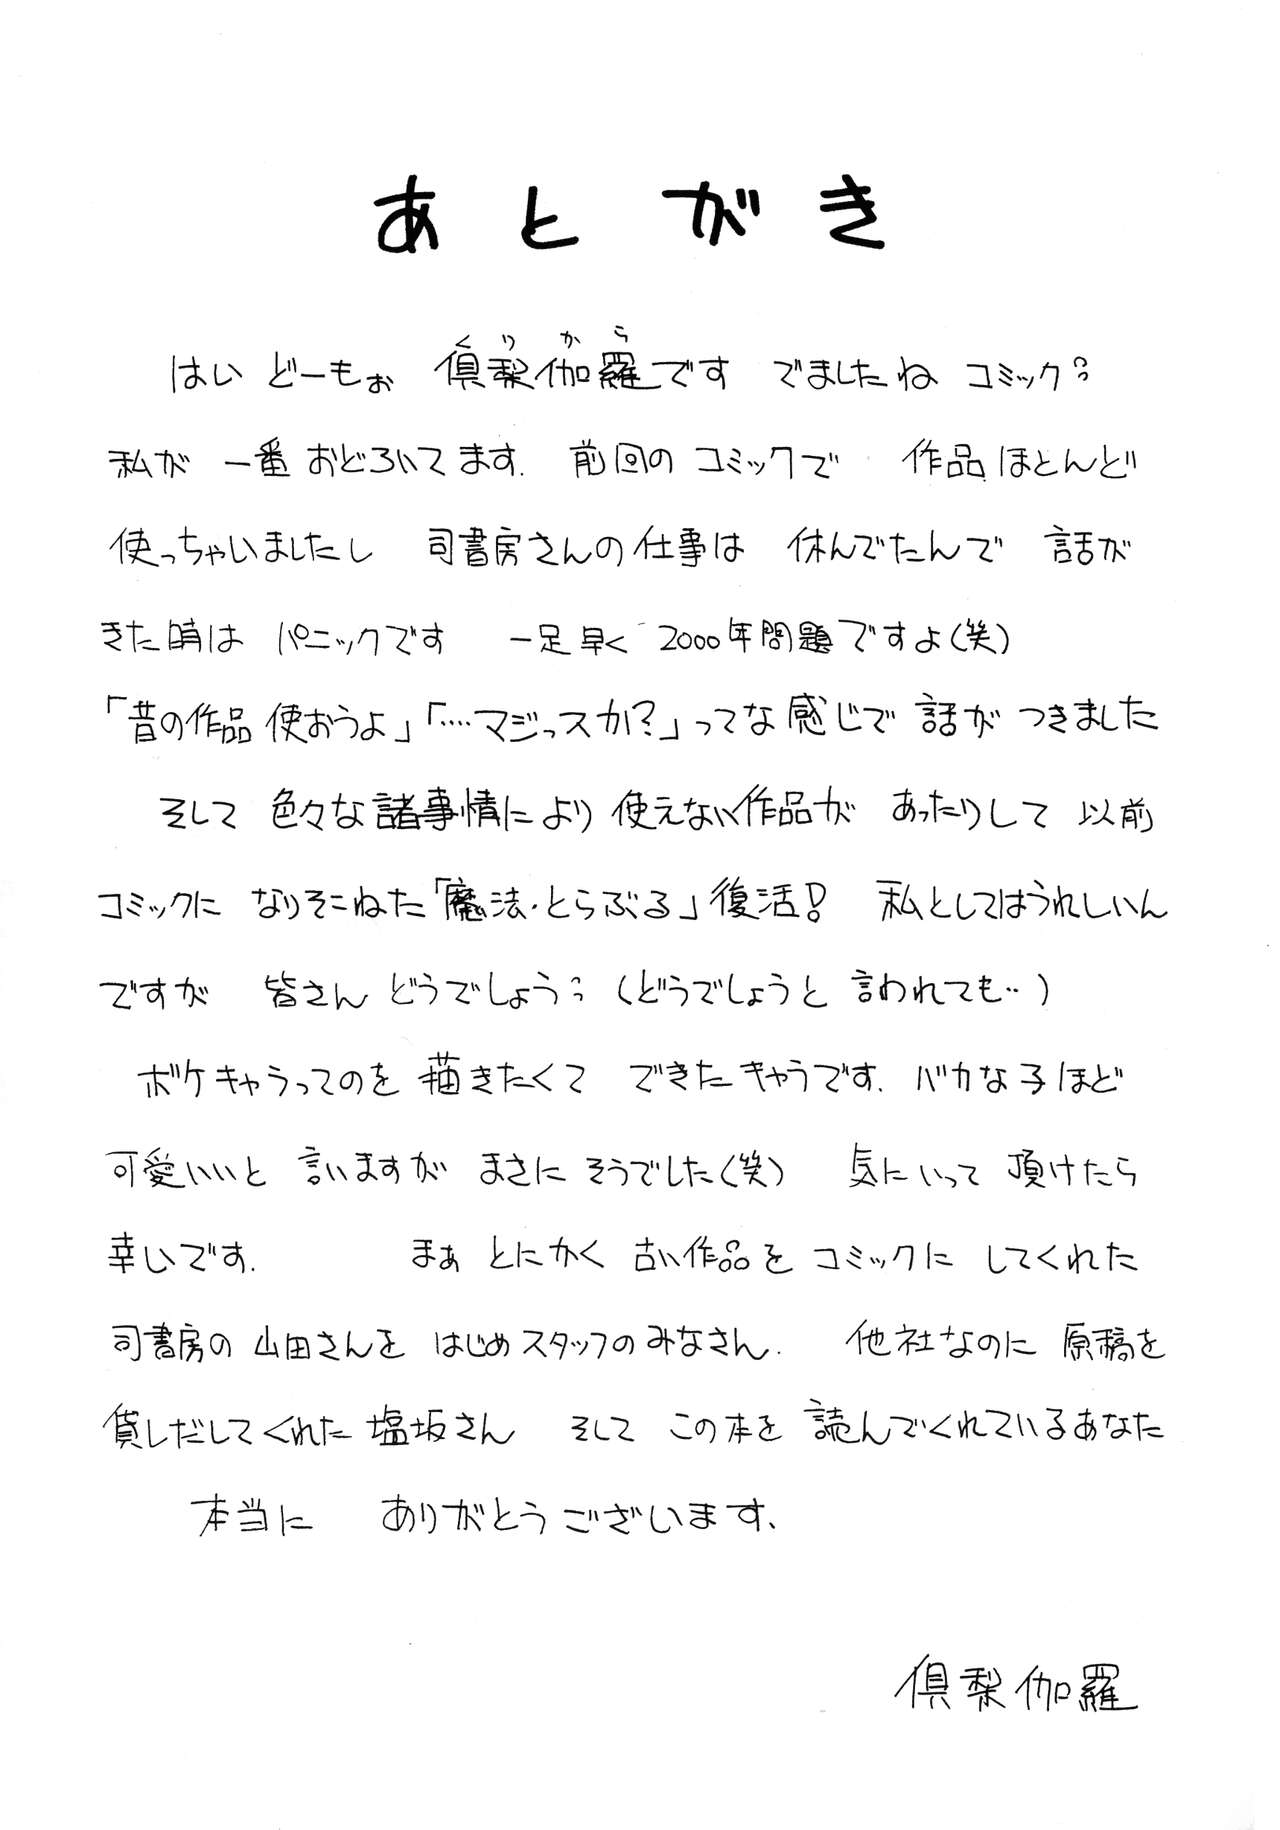 あとがき
はい どーもぉ 倶梨伽羅です でましたね コミックっ
くりから
私が 一番 おどろいてます. 前回の コミックで 作品 ほとんど
使っちゃいましたし 司書房さんの仕事は 休んでたんで 話が
きた時は パニックです 一足早く 2000年問題ですよ(笑)
「昔の作品 使おうよ」「‥‥マジっスか?」ってな 感じで 話が つきました
そして 色々な 諸事情により 使えない作品が あったりして 以前
コミックに なりそこねた「魔法・とらぶる」復活! 私としてはうれしいん
ですが 皆さん どうでしょうっ (どうでしょうと 言われても‥)
ボケキャラってのを 描きたくて できたキャラです. バカな子ほど
可愛いいと 言いますが まさに そうでした(笑) 気にいって 頂けたら
幸いです. まぁ とにかく 古い作品を コミックに してくれた
司書房の 山田さんを はじめスタッフのみなさん. 他社なのに 原稿を
貸しだしてくれた 塩坂さん そして この本を 読んでくれているあなた
本当に ありがとうございます.
倶梨伽羅